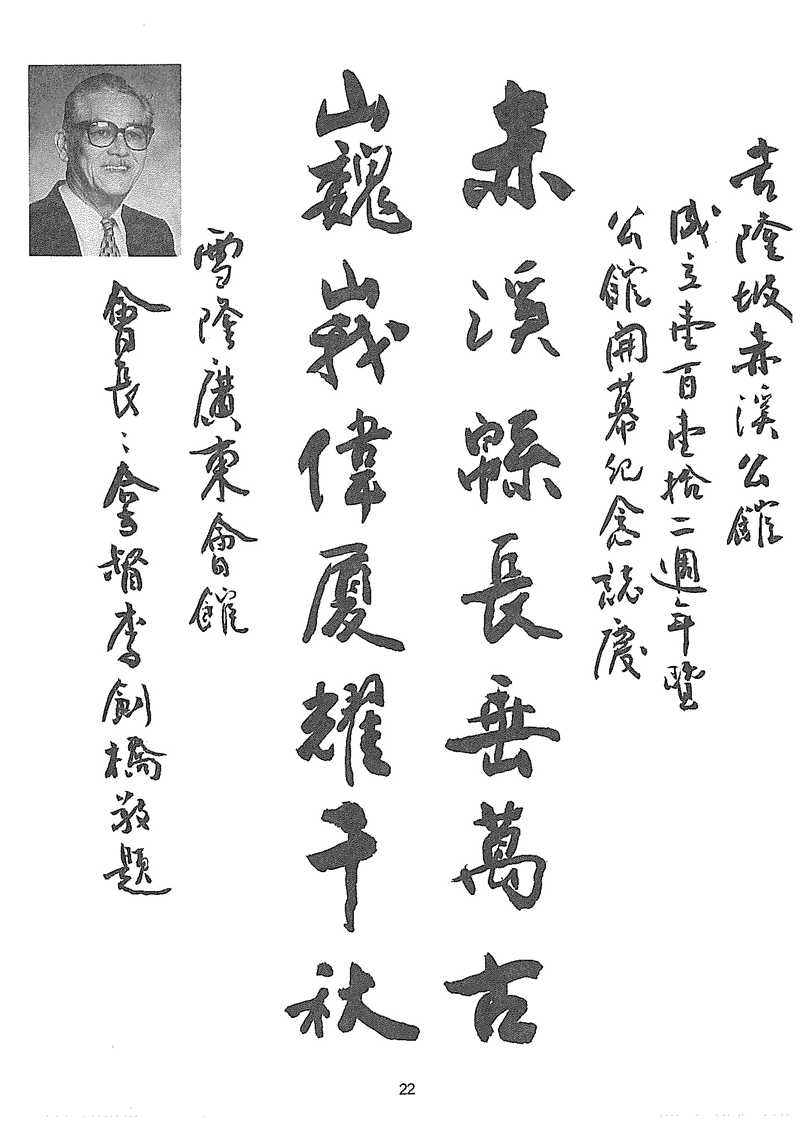 吉隆坡赤溪公館
成立壹百壹拾二週年暨
公館開幕紀念誌慶
赤溪緜長垂萬古
巍峩偉厦耀千秋
雪隆廣東會館
會長：拿督李劍橋敬題
22